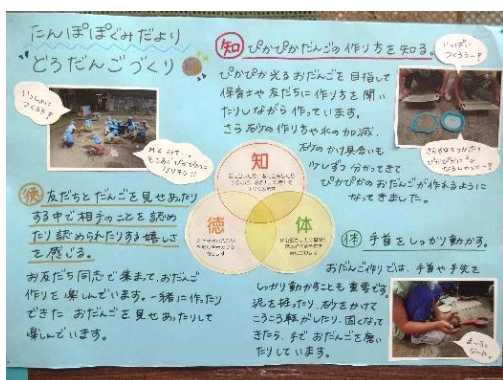 たんぽぽぐみだより
どろだんごづくり
いっしょに
つくろう!
知 ぴかぴかだんごの作り方を知る。
ぴかぴか光るおだんごを目指して
保育者や友だちに作り方を聞い
たりしながら作っています。
さら砂の作り方や水の加減、
砂のかけ具合も
少しずつ分かってきて
ぴかぴかのおだんごが作れるように
なってきました。
いっぱい
つくろうー!
知
徳
体
徳 友だちとだんごを見せあったり
する中で相手のことを認め
たり認められたりする嬉しさ
を感じる。
お友だち同志で集まって、おだんご
作りを楽しんでいます。一緒に作ったり
できた おだんごを見せあったりして
楽しんでいます。
体 手首をしっかり動かす。
おだんご作りでは、手首や手先を
しっかり動かすことも重要です。
泥を絞ったり、砂をかけて
こうこう転がしたり、固くなって
きたら、手で おだんごを磨い
たりしています。